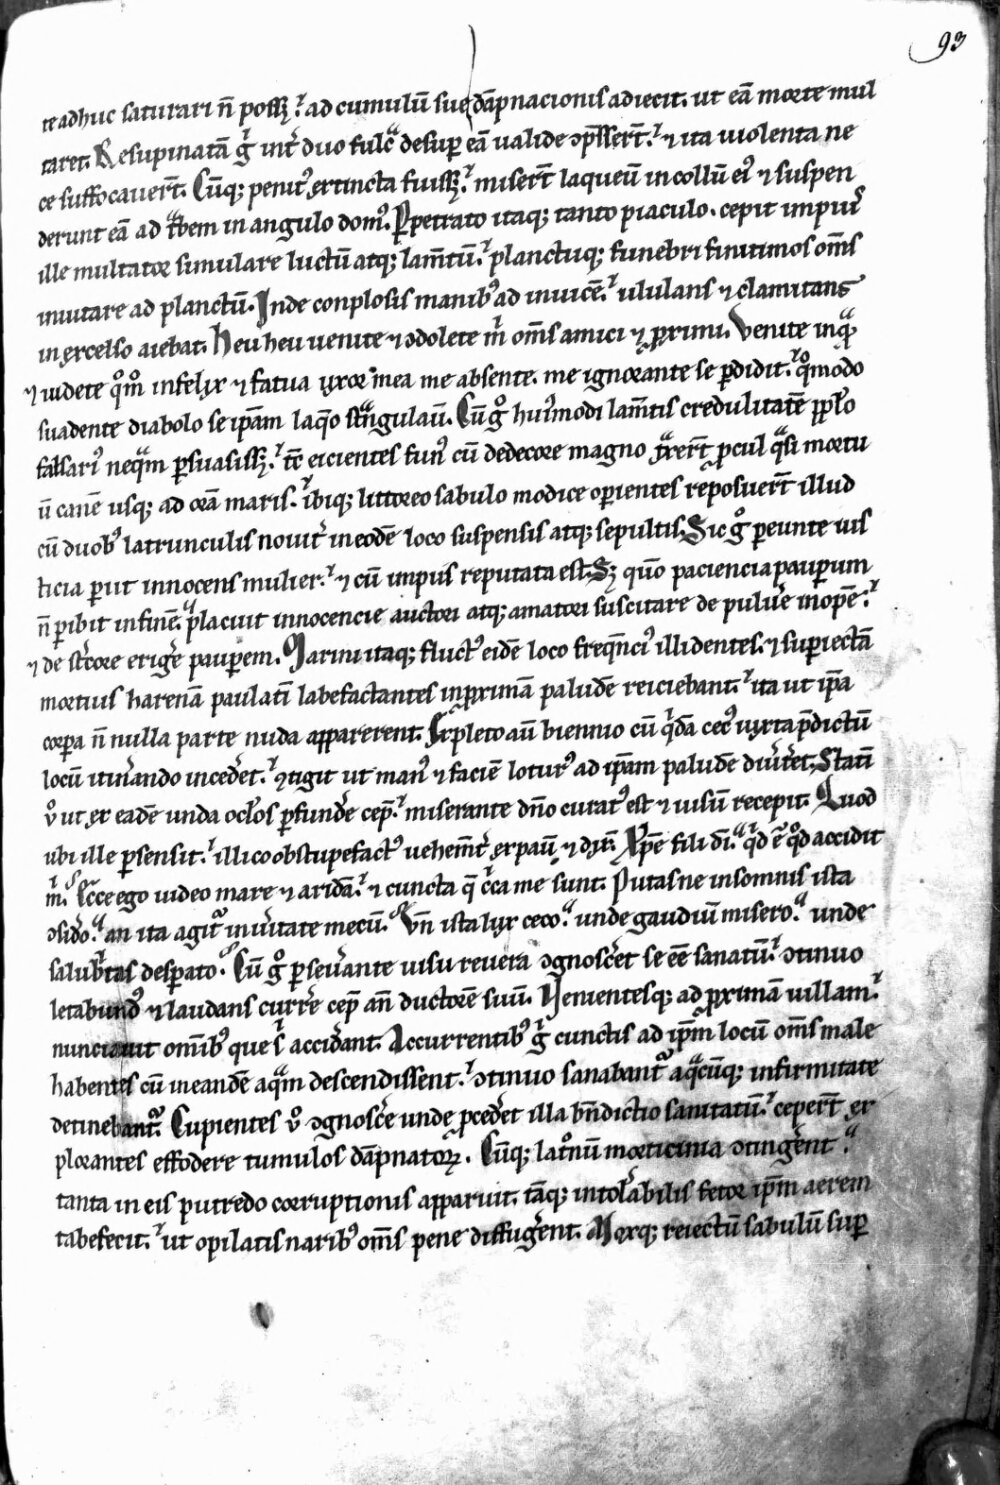 93
te adhuc saturari n̄ possꝫ. ad cumulū sue dāpnacionis adiecit. ut eā morte mul
taret. Resupinatā gͥ int̄ duo fulcͣ desuꝑ eā ualide ↄp̄sser̄t. ⁊ ita uiolenta ne
ce suffocauer̄t. Cūqꝫ penitꝰ extincta fuissꝫ. miser̄t laqueū in collū eiꝰ ⁊ suspen
derunt eā ad tͣbem in angulo domꝰ. Ꝑpetrato itaqꝫ tanto piaculo. cepit impiꝰ
ille multator simulare luctū atqꝫ lam̄tū. planctuqꝫ funebri finitimos om̄s
inuitare ad planctū. Inde conplosis manibꝰ ad inuicē. ululans ⁊ clamitans
in excelso aiebat. Heu heu uenite ⁊ ↄdolete mͥ om̄s amici ⁊ ꝓximi. Venite inqͣ
⁊ uidete qͦm̊ infelix ⁊ fatua uxor mea me absente. me ignorante se ꝑdidit. qͦmodo
suadente diabolo se ip̄am laq̊o stͣngulauit. Cū gͦ huiꝰmodi lam̄tis credulitatē pp̄lo
falsariꝰ neqͣm ꝑsuasissꝫ. tc̄ eicientes funꝰ cū dedecore magno tͣxer̄t ꝓcul qͣsi mortu
ū canē usqꝫ ad orā maris. ibiqꝫ littoreo sabulo modice oꝑientes reposuer̄t illud
cū duobꝰ latrunculis nouit̄ in eodē loco suspensis atqꝫ sepultis. Sic gͦ ꝑeunte ius
ticia ꝑiit innocens mulier. ⁊ cū impiis reputata est. Sꝫ qm̄ paciencia pauꝑum
n̄ ꝑibit in finē. placuit innocencie auctori atqꝫ amatori suscitare de puluꝰe inopē.
⁊ de st̄core erigꝰe pauꝑem. Marini itaqꝫ fluctꝰ eidē loco freq̄nciꝰ illidentes. ⁊ suꝑiectā
mortuis harenā paulatī labefactantes in ꝓximā paludē reiciebant. ita ut ip̄a
corꝑa n̄ nulla parte nuda apparerent. Expleto aū biennio cū qͥdā cecꝰ iuxta p̄dictū
locū itinꝰando incedꝰet. ↄtigit ut manꝰ ⁊ faciē loturꝰ ad ip̄am paludē diuꝰtꝰet. Statī
ꝰo ut ex eadē unda oclōs ꝑfundꝰe cep̄. miserante dn̄o curatꝰ est ⁊ uisū recepit. Quod
ubi ille ꝑsensit. illico obstupefactꝰ uehem̄t̄ expauit ⁊ dix̄. Xp̄e fili dī. qͥd ē qͦd accidit
mͥ. Ecce ego uideo mare ⁊ aridā. ⁊ cuncta q̄ cͥca me sunt. Putasne in somnis ista
ↄsidꝰo. an ita agitͬ in uꝰitate mecū. Vn̄ ista lux ceco. unde gaudiū misero. unde
salubꝰtas despꝑato. Cū gͦ ꝑseuꝰante uisu reuera ↄgnoscꝰet se eē sanatū. ↄtinuo
letabundꝰ ⁊ laudans currꝰe cep̄ an̄ ductorē suū. Venientesqꝫ ad ꝓximā uillam.
nunciauit om̄ibꝰ que sͥ accidꝰant. Accurrentibꝰ gͥ cunctis ad ip̄m locū om̄s male
habentes cū in eandē aqͣm descendissent. ↄtinuo sanabantͬ a qͣcūqꝫ infirmitate
detinebantͬ. Cupientes ꝰo ↄgnoscꝰe unde ꝓcedꝰet illa bn̄dictio sanitatū. ceper̄t ex
plorantes effodere tumulos dāpnatoꝝ. Cūqꝫ latͦnū morticinia ↄtingꝰent.
tanta in eis putredo corruptionis apparuit. tāqꝫ intolꝰabilis fetor ip̄m aerem
tabefecit. ut opilatis naribꝰ om̄s pene diffugꝰent. Moxqꝫ reiectū sabulū suꝑ